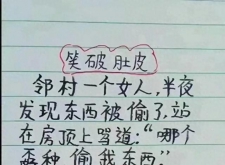 笑破肚皮
邻村一个女人，半夜
发现东西被偷了，站
在房顶上骂道：“哪个
种 偷我东西”